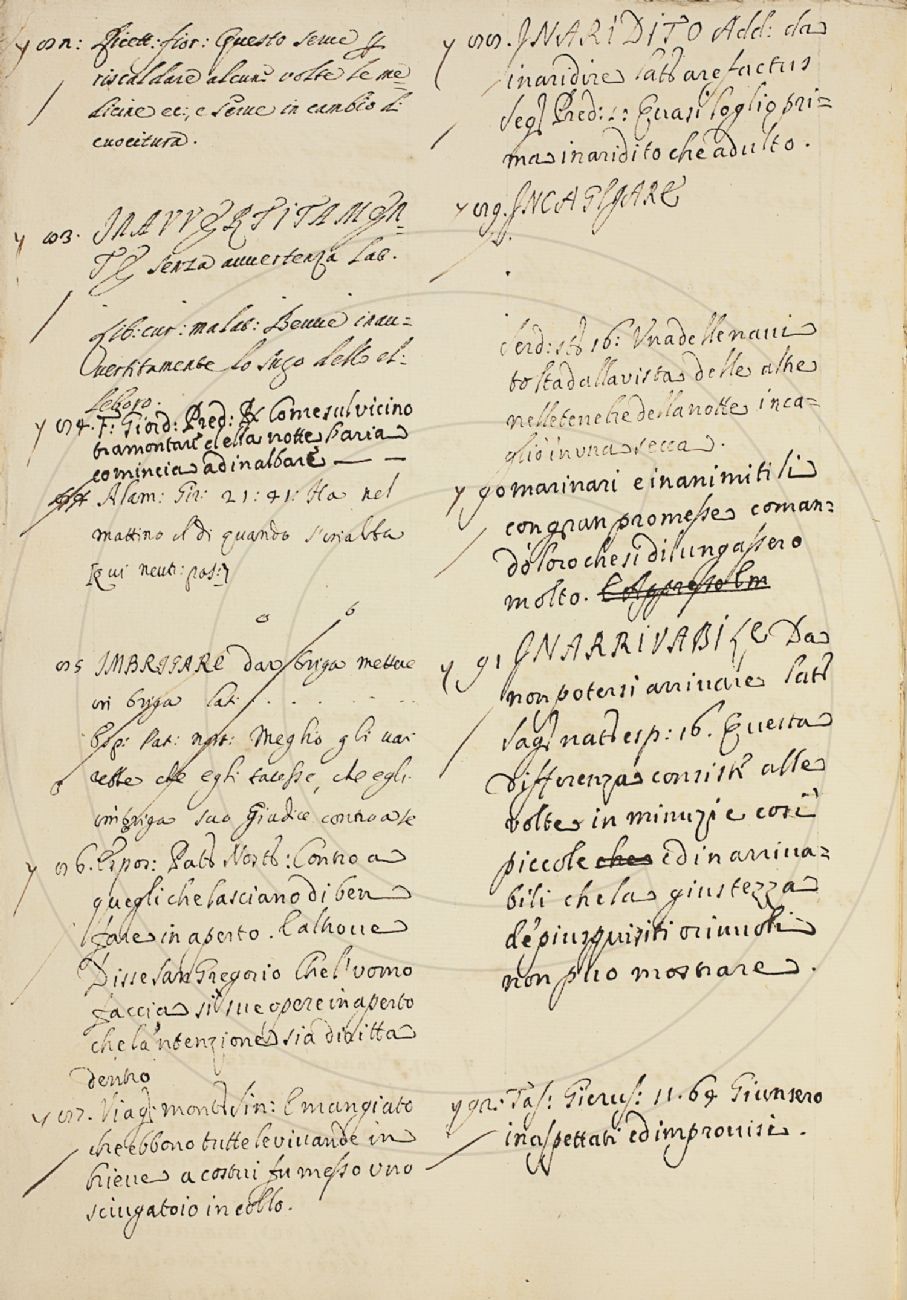 82: Ricett: fior: Questo serue p
riscaldare alcune volte le me=
dicine ec:, e serue in cambio di
cuocitura.
83. INAVVERTITAMEN=
TE senza auuertenza Lat.
Lib: cur: malat: Beuue inau=
uertitamente lo sugo dello el=
leboro.
84. F: Giord: Pred: R Come sul vicino
tramontare della notte l'aria
comincia ad inalbare — —
Alam: Gir: 21: 41: Ha nel
mattino il dì quando s'inalba
[qui neutr: pas:]
a b
85 IMBRIGARE dar briga mettere
in briga lat: . . . . . .
Esp: Pat: nost: Meglio gli var
rebbe che egli tacesse, che egli
imbriga suo Giudice contro a se
86. Espos: Patr Nostr: Contro a
quegli che lasciano di ben
fare in aperto. Lalhoue
Disse San Gregorio Che l'uomo
faccia sì sue opere in aperto
che la 'ntenzione sia diritta
dentro
87. Viag: mont: Sin: E mangiato
che ebbono tutte le viuande in
brieue a costui fu messo vno
sciugatoio in collo.
88. INARIDITO Add: da
inaridire lat: arefactus
Seg: Pred: 2: Quasi foglio pri=
ma inaridito che adulto.
89. INCAGLIARE
Serd: st: 16: Vna delle naui
tolta dalla vista delle altre
nelle tenebre della notte inca=
gliò in vna secca.
90 marinari e inanimiti li
con gran promesse coman=
dò loro che si dilungassero
molto.
91 INARRIVABILE Da
non potersi arriuare lat:
Sag: nat: esp: 16. Questa
differenza consiste alle
volte in minuzie così
piccole che ed inarriua=
bili che la giustezza
de' piu squisiti oriuoli
non può mostrare.
92: Tas: Gierus: 11. 64 Giunsero
inaspettati ed improuisi.